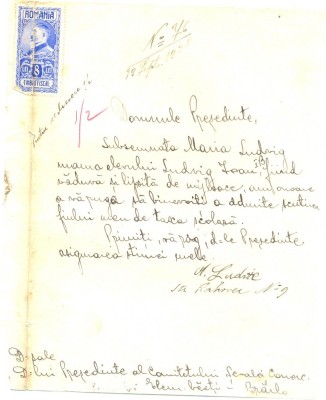 ROMANIA
LEI 8 LEI
TIMBRU FISCAL
1/2
Domnule Președinte,
Subsemnata Maria Ludvig
mama elevului Ludvig Ioan, fiind
văduvă și lipsită de mijloace, am onoare
a vă ruga să binevoiți a admite scutirea
fiului meu de taxa școlară.
Primiți, vă rog, d-le Președinte,
asigurarea stimei mele.
M. Ludvic
No 9
D-sale
D-lui Președinte al Comitetului Școală Comer.
Elem. băeți - Brăila